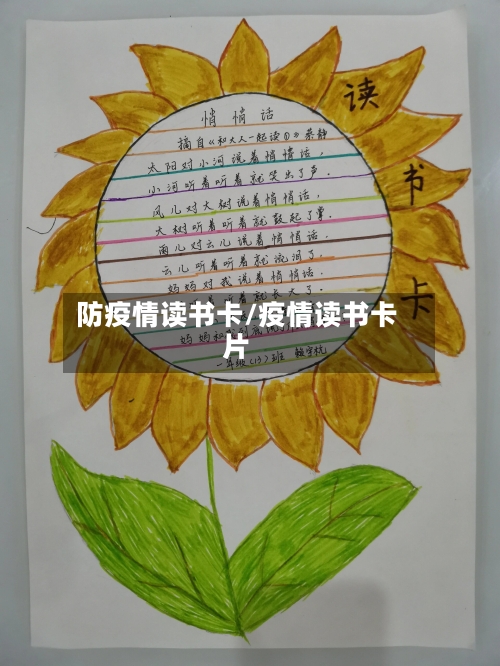 读书卡
悄悄话
摘自《和大人一起读①》蔡静
太阳对小河说着悄悄话,
小河听着听着就笑出了声。
风儿对大树说着悄悄话,
大树听着听着就鼓起了掌。
雨儿对云儿说着悄悄话,
云儿听着听着就流泪了。
妈妈对我说着悄悄话,
听着就长大了
防疫情读书卡/疫情读书卡
片
妈妈和
一年级(13)班